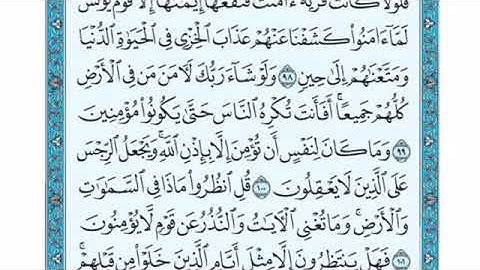 فَلَوْلَا كَانَتْ قَرْيَةٌ ءَامَنَتْ فَنَفَعَهَآ إِيمَٰنُهَآ إِلَّا قَوْمَ يُونُسَ
لَمَّآ ءَامَنُوا۟ كَشَفْنَا عَنْهُمْ عَذَابَ ٱلْخِزْىِ فِى ٱلْحَيَوٰةِ ٱلدُّنْيَا
وَمَتَّعْنَٰهُمْ إِلَىٰ حِينٍ ٩٨ وَلَوْ شَآءَ رَبُّكَ لَـَٔامَنَ مَن فِى ٱلْأَرْضِ
كُلُّهُمْ جَمِيعًا ۚ أَفَأَنتَ تُكْرِهُ ٱلنَّاسَ حَتَّىٰ يَكُونُوا۟ مُؤْمِنِينَ
٩٩ وَمَا كَانَ لِنَفْسٍ أَن تُؤْمِنَ إِلَّا بِإِذْنِ ٱللَّهِ ۚ وَيَجْعَلُ ٱلرِّجْسَ
عَلَى ٱلَّذِينَ لَا يَعْقِلُونَ ١٠٠ قُلِ ٱنظُرُوا۟ مَاذَا فِى ٱلسَّمَٰوَٰتِ
وَٱلْأَرْضِ ۚ وَمَا تُغْنِى ٱلْـَٔايَٰتُ وَٱلنُّذُرُ عَن قَوْمٍ لَّا يُؤْمِنُونَ
١٠١ فَهَلْ يَنتَظِرُونَ إِلَّا مِثْلَ أَيَّامِ ٱلَّذِينَ خَلَوْا۟ مِن قَبْلِهِمْ ۚ